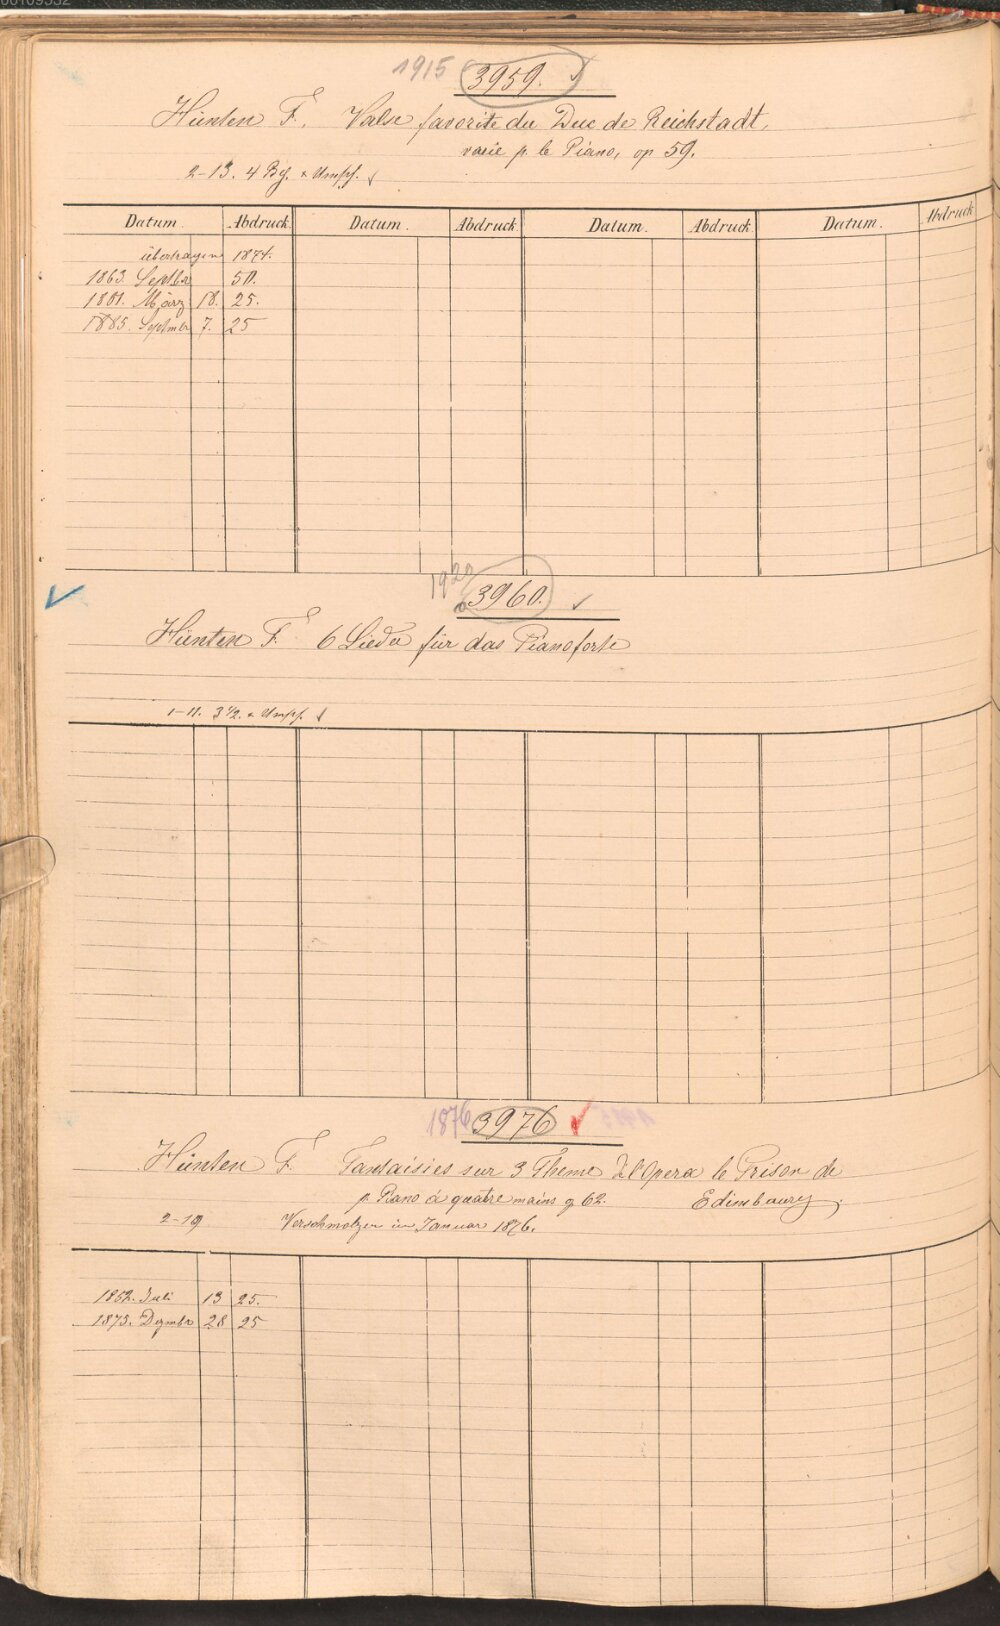 1915 3959.
Hünten F. Valse favorite du Duc de Reichstadt,
varié p. le Piano, op 59.
2-13. 4 Bg.
Datum. Abdruck Datum. Abdruck Datum. Abdruck Datum. Abdruck
übertragen 1874.
1863. Septbr 50.
1881. März 18. 25.
1885. Septmbr 7. 25
1920 3960.
Hünten F. 6 Lieder für das Pianoforte
1-11. 3 1/2.
1876 3976
Hünten F. Fantaisies sur 3 Theme de l'Opera le Prison de
p. Piano à quatre mains 62. Edimbourg.
2-19 Verschmolzen im Januar 1876.
1862. Juli 13 25.
1873. Dezmbr 28 25